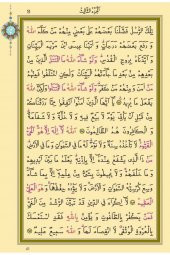 الجزء الثالث
تِلْكَ الرُّسُلُ فَضَّلْنَا بَعْضَهُمْ عَلَى بَعْضٍ مِنْهُمْ مَنْ كَلَّمَ اللهُ
وَرَفَعَ بَعْضَهُمْ دَرَجَاتٍ وَآتَيْنَا عِيسَى ابْنَ مَرْيَمَ الْبَيِّنَاتِ
وَأَيَّدْنَاهُ بِرُوحِ الْقُدُسِ وَلَوْ شَاءَ اللهُ مَا اقْتَتَلَ الَّذِينَ مِنْ
بَعْدِهِمْ مِنْ بَعْدِ مَا جَاءَتْهُمُ الْبَيِّنَاتُ وَلَكِنِ اخْتَلَفُوا فَمِنْهُمْ
مَنْ آمَنَ وَمِنْهُمْ مَنْ كَفَرَ وَلَوْ شَاءَ اللهُ مَا اقْتَتَلُوا وَلَكِنَّ اللهَ
يَفْعَلُ مَا يُرِيدُ يَا أَيُّهَا الَّذِينَ آمَنُوا أَنْفِقُوا مِمَّا رَزَقْنَاكُمْ
مِنْ قَبْلِ أَنْ يَأْتِيَ يَوْمٌ لَا بَيْعٌ فِيهِ وَلَا خُلَّةٌ وَلَا شَفَاعَةٌ
وَالْكَافِرُونَ هُمُ الظَّالِمُونَ اللهُ لَا إِلَهَ إِلَّا هُوَ الْحَيُّ
الْقَيُّومُ لَا تَأْخُذُهُ سِنَةٌ وَلَا نَوْمٌ لَهُ مَا فِي السَّمَاوَاتِ وَمَا فِي
الْأَرْضِ مَنْ ذَا الَّذِي يَشْفَعُ عِنْدَهُ إِلَّا بِإِذْنِهِ يَعْلَمُ مَا بَيْنَ أَيْدِيهِمْ
وَمَا خَلْفَهُمْ وَلَا يُحِيطُونَ بِشَيْءٍ مِنْ عِلْمِهِ إِلَّا بِمَا شَاءَ
وَسِعَ كُرْسِيُّهُ السَّمَاوَاتِ وَالْأَرْضَ وَلَا يَئُودُهُ حِفْظُهُمَا وَهُوَ الْعَلِيُّ
الْعَظِيمُ لَا إِكْرَاهَ فِي الدِّينِ قَدْ تَبَيَّنَ الرُّشْدُ مِنَ الْغَيِّ
فَمَنْ يَكْفُرْ بِالطَّاغُوتِ وَيُؤْمِنْ بِاللهِ فَقَدِ اسْتَمْسَكَ
بِالْعُرْوَةِ الْوُثْقَى لَا انْفِصَامَ لَهَا وَاللهُ سَمِيعٌ عَلِيمٌ